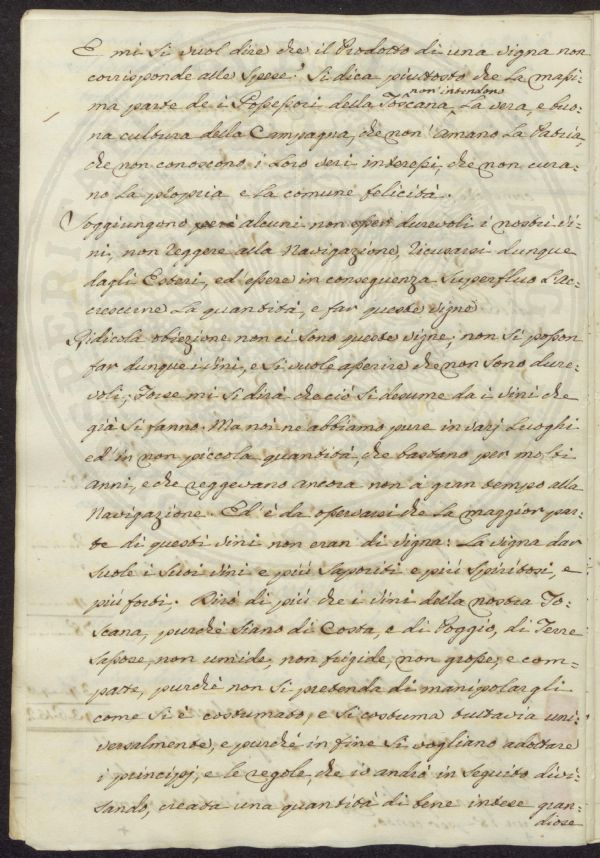 E mi si vuol dire che il Prodotto di una vigna non
corrisponde alle spese? Si dica piuttosto che la massi-
ma parte de i Possessori della Toscana non intendono la vera, e buo-
na cultura della Campagna, che non amano la Patria,
che non conoscono i loro veri interessi, che non cura-
no la propria e la comune felicità.
Soggiungono però alcuni non esser durevoli i nostri vi-
ni, non reggere alla Navigazione, ricusarsi dunque
dagli Esteri, ed essere in conseguenza superfluo l'Ac-
crescerne la quantità, e far queste vigne
Ridicola obiezione non ci sono queste vigne; non si posson
far dunque i vini, e si vuole asserire che non sono dure-
voli; Forse mi si dirà che ciò si desume da i vini che
già si fanno. Ma noi ne abbiamo pure in varj Luoghi
ed' in non piccola quantità, che bastano per molti
anni, e che reggevano ancora non à gran tempo alla
Navigazione. Ed' è da osservarsi che la maggior par-
te di questi vini non eran di vigna: La vigna dar
suole i suoi vini e più saporiti e più spiritosi, e
più forti. Dirò di più che i vini della nostra To-
scana, purchè siano di Costa, e di Poggio, di Terre
sassose, non umide, non frigide, non grosse, e com-
patte, purchè non si pretenda di manipolargli
come si è costumato, e si costuma tuttavia uni-
versalmente, e purchè in fine si vogliano adottare
i principj, e le regole, che io andrò in seguito divi-
sando, creata una quantità di bene intese gran-
diose